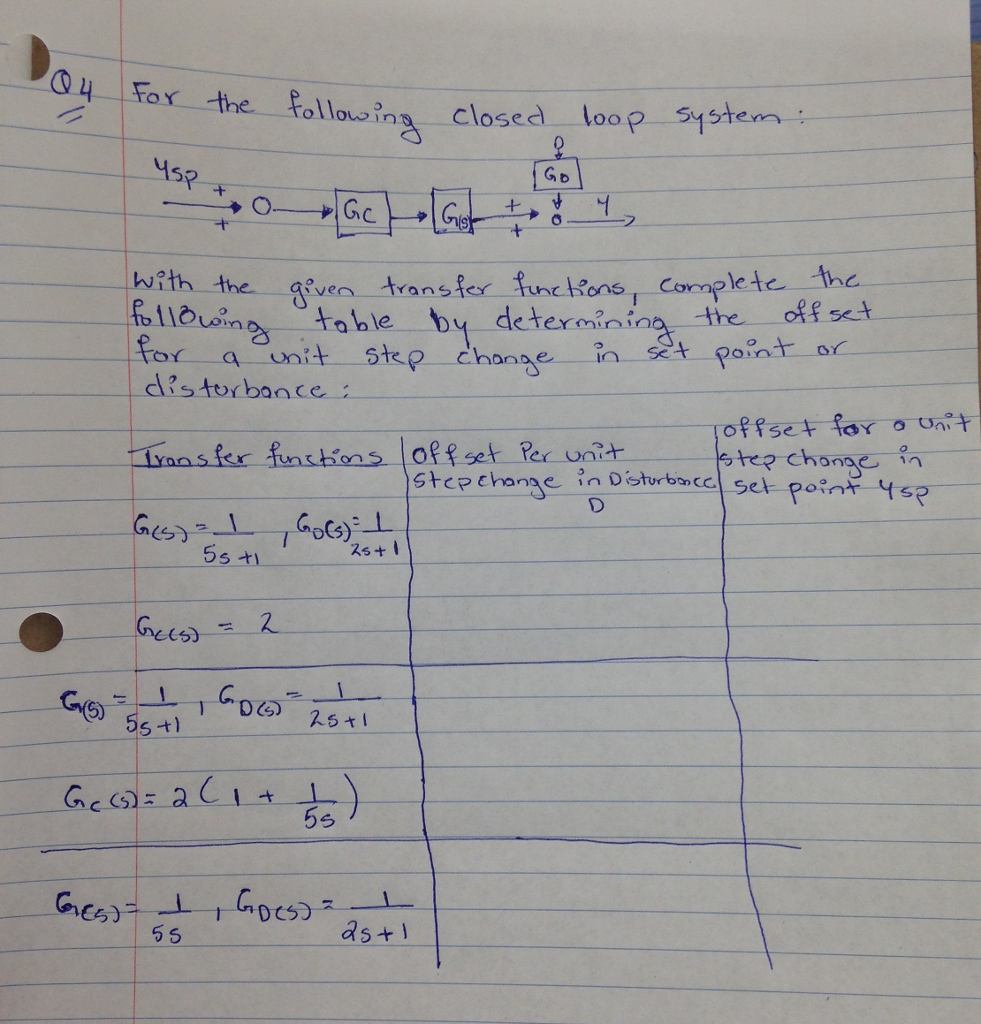 Q4 For the following closed loop system :
D
GD
Ysp + + GC G(s) + + Y
With the given transfer functions, complete the
following table by determining the offset
for a unit step change in set point or
disturbance :
Transfer functions | Offset Per unit | offset for a unit
step change in Disturbance | step change in
D | set point Ysp
G(s) = 1/(5s+1) , GD(s) = 1/(2s+1)
Gc(s) = 2
G(s) = 1/(5s+1) , GD(s) = 1/(2s+1)
Gc(s) = 2(1 + 1/5s)
G(s) = 1/5s , GD(s) = 1/(2s+1)